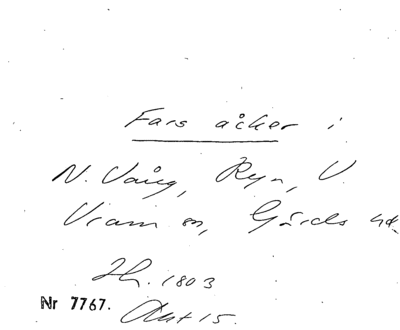 Fars åker i
N. Vång, Ryn, V.
Vram sn, Gärds hd.
Lh. 1803
Nr 7767.
Akt 15.